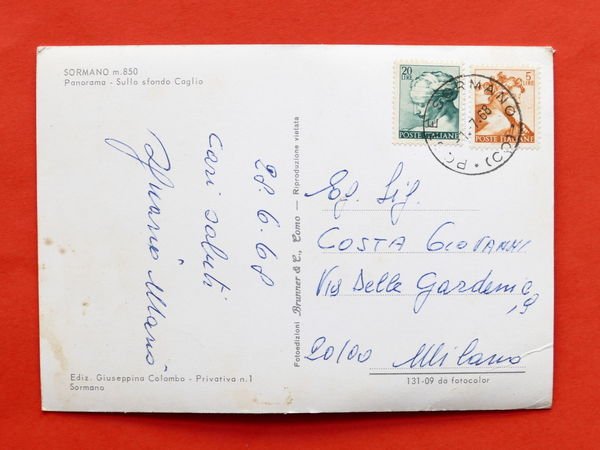 SORMANO m.850
Panorama - Sullo sfondo Caglio
28.6.68
Cari saluti
Fotoedizioni Brunner & C., Como — Riproduzione vietata
20 LIRE
POSTE ITALIANE
5 LIRE
POSTE ITALIANE
SORMANO (CO)
.7.68
Eg. Sig.
COSTA GIOVANNI
Via Delle Gardenie, 9
20100 Milano
Ediz. Giuseppina Colombo - Privativa n.1
Sormano
131-09 da fotocolor